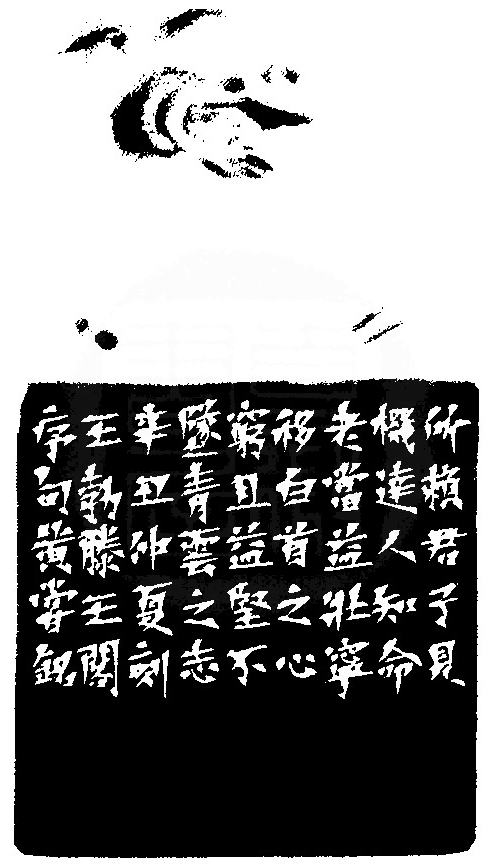 所賴君子見
機達人知命
老當益壯寧
移白首之心
窮且益堅不
墜青雲之志
辛丑仲夏刻
王勃滕王閣
序句黃嘗銘